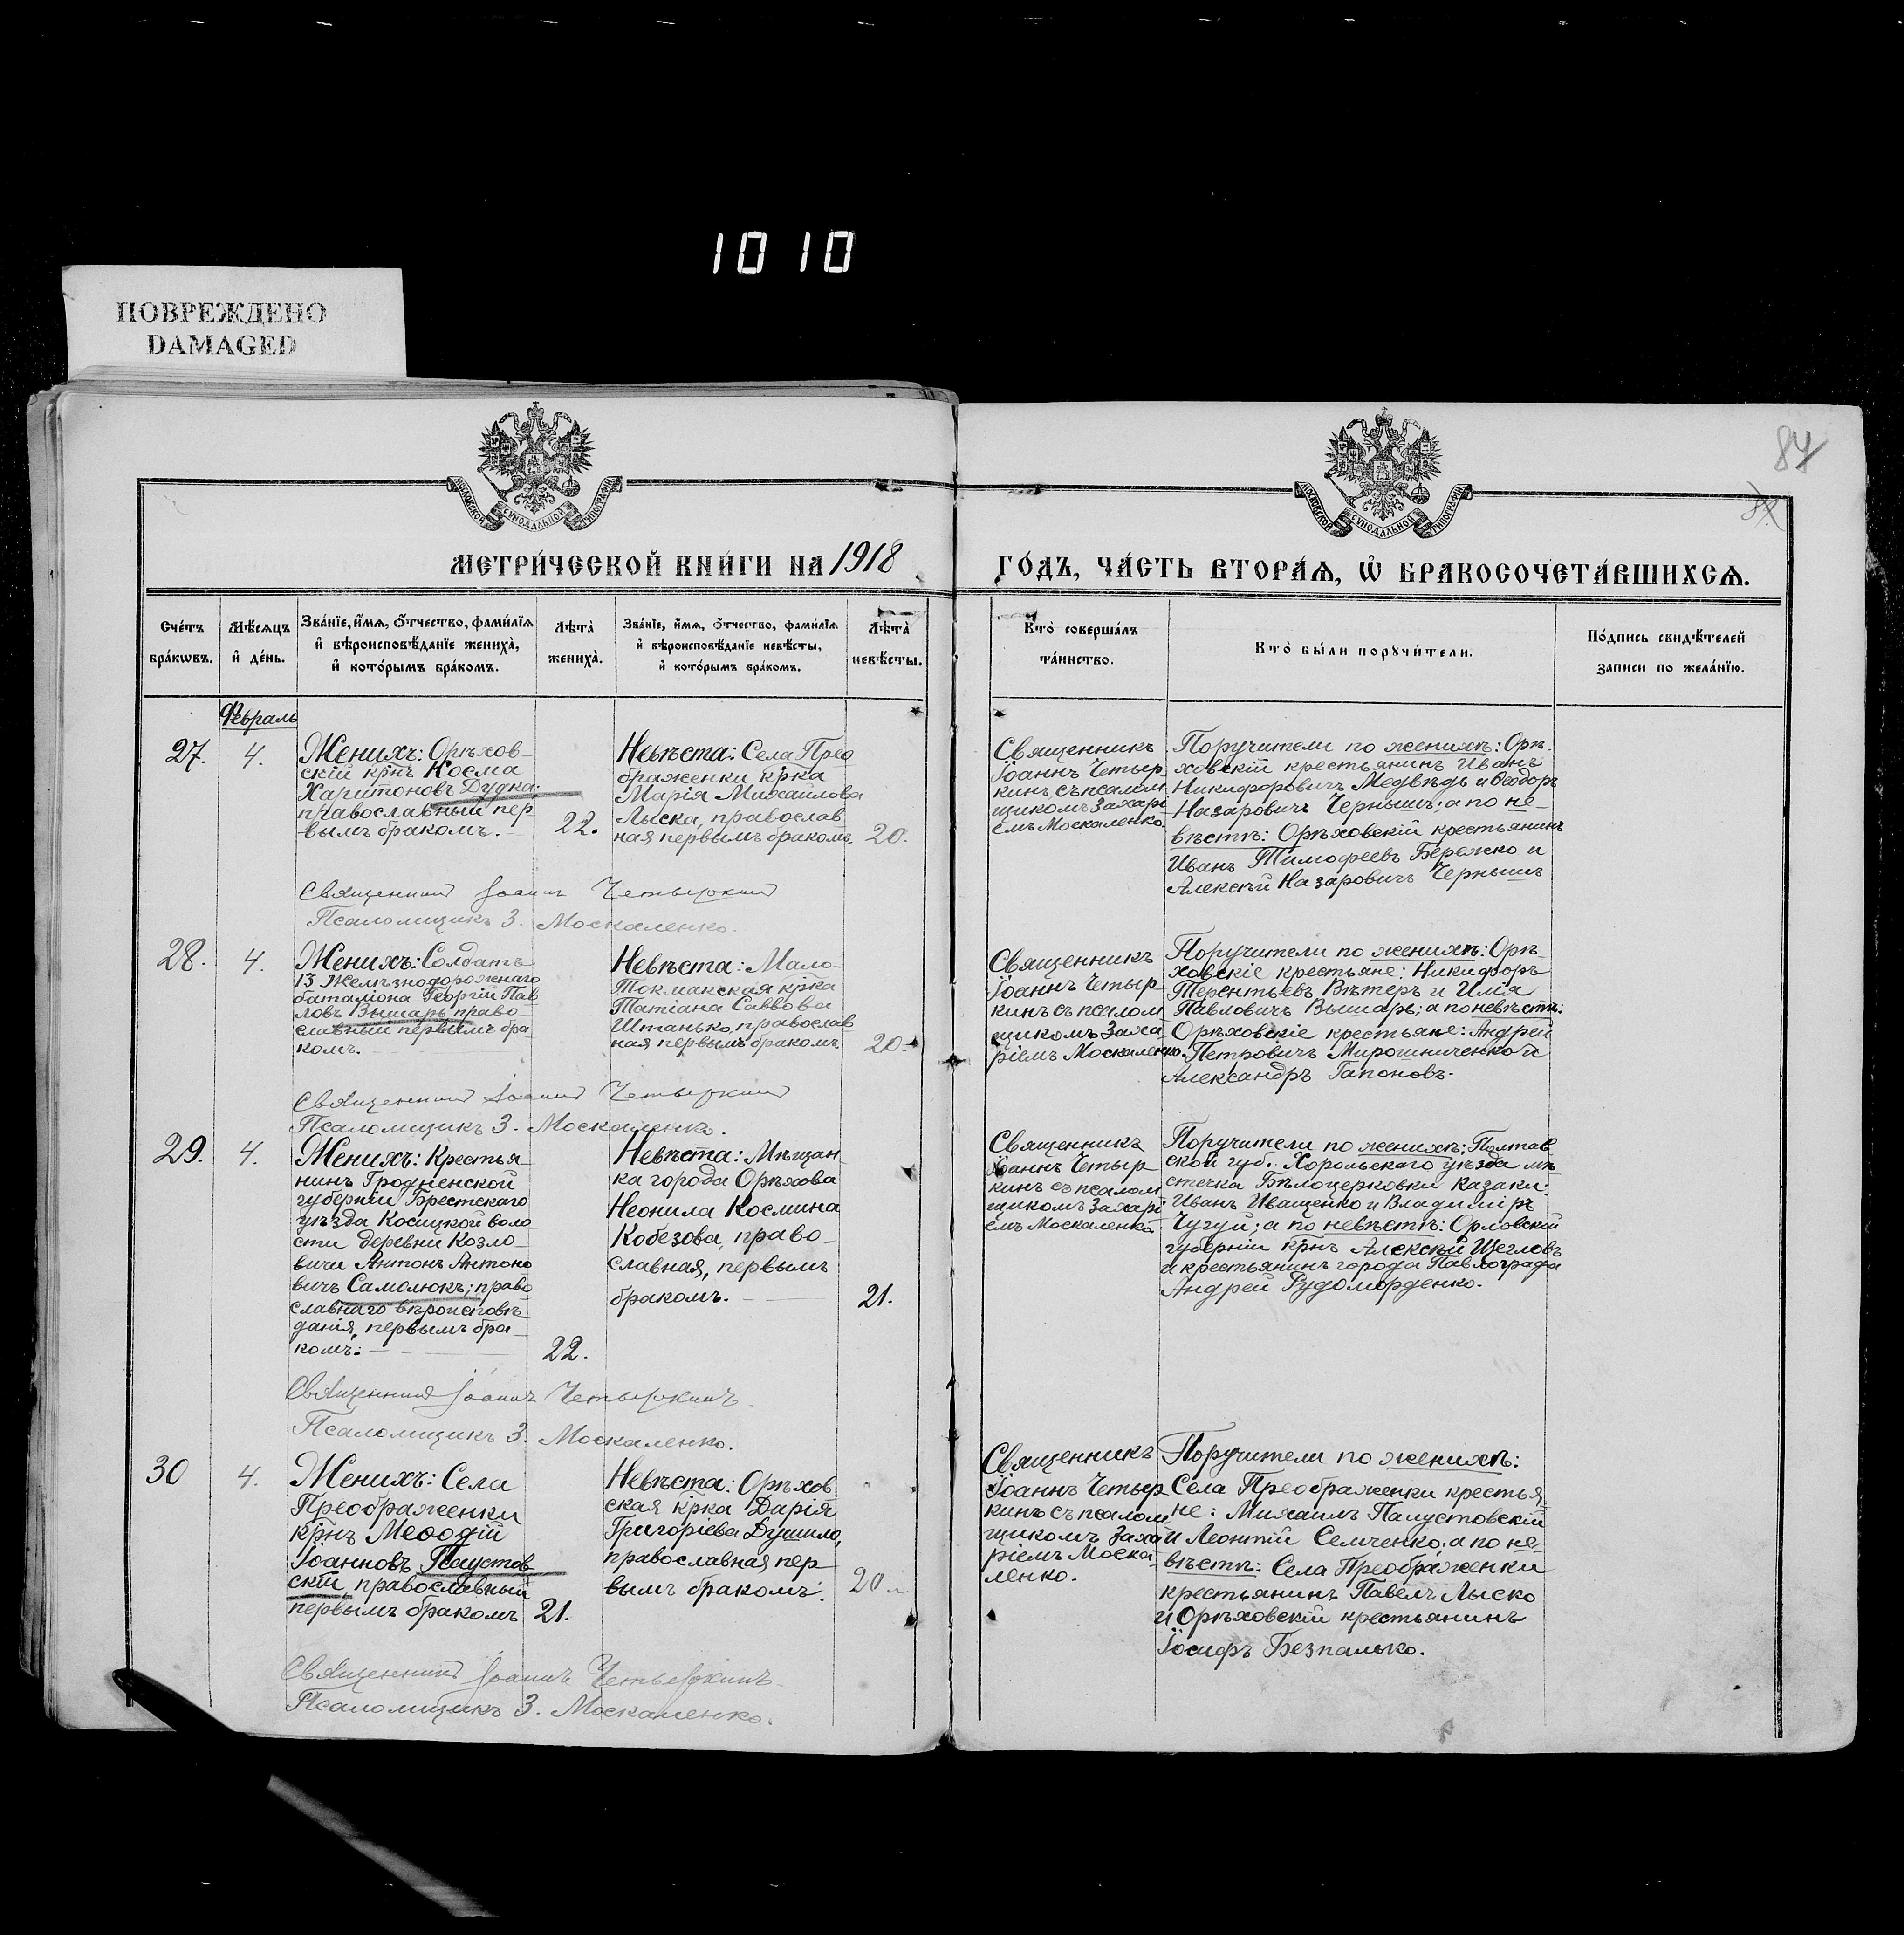 1010
ПОВРЕЖДЕНО
DAMAGED
84
МОСКОВСКОЙ СѴНОДАЛЬНОЙ ТИПОГРАФІИ
МОСКОВСКОЙ СѴНОДАЛЬНОЙ ТИПОГРАФІИ
МЕТРИ́ЧЕСКОЙ КНИ́ГИ НА 1918
ГО́ДЪ, ЧА́СТЬ ВТОРА́Ѧ, Ѡ҆ БРАКОСОЧЕТА́ВШИХСѦ.
Сче́тъ
бра́кѡвъ.
Мѣ́сѧцъ
и҆ де́нь.
Зва́нїе, и҆́мѧ, ѻ҆́тчество, фами́лїѧ
и҆ вѣроисповѣ́данїе жениха̀,
и҆ кото́рымъ бра́комъ.
Лѣ́та̀
жениха̀.
Зва́нїе, и҆́мѧ, ѻ҆́тчество, фами́лїѧ
и҆ вѣроисповѣ́данїе невѣ́сты,
и҆ кото́рымъ бра́комъ.
Лѣ́та̀
невѣ́сты.
Кто̀ соверша́лъ
та́инство.
Кто̀ бы́ли порꙋчи́тели.
По́дпись свидѣ́телей
записи по жела́нїю.
Февраль
27.
4.
Женихъ: Орѣхов-
скій крнъ Косма
Харитоновъ Дудка;
православный пер
вымъ бракомъ.
22.
Невѣста: Села Прео
браженки крка
Марія Михайлова
Лыска, православ
ная первымъ бракомъ.
20.
Священникъ
Іоаннъ Четыр
кинъ съ псалом
щикомъ Захарі
емъ Москаленко.
Поручители по женихѣ: Орѣ-
ховскій крестьянинъ Иванъ
Никифоровичъ Медвѣдь и Ѳеодоръ
Назаровичъ Чернышъ; а по не-
вѣстѣ: Орѣховскій крестьянинъ
Иванъ Тимофеевъ Бережко и
Алексѣй Назаровичъ Чернышъ
Священник Іоаннъ Четыркинъ
Псаломщикъ З. Москаленко.
28.
4.
Женихъ: Солдатъ
13 Желѣзнодорожнаго
баталіона Георгій Пав
ловъ Вышарь право-
славный первымъ бра-
комъ.
Невѣста: Мало-
Токмакская крка
Татіана Саввова
Штанько, православ
ная первымъ бракомъ.
20
Священникъ
Іоаннъ Четыр-
кинъ съ псалом
щикомъ Заха-
ріемъ Москаленко.
Поручители по женихѣ: Орѣ-
ховскіе крестьяне: Никифоръ
Терентьевъ Вѣтеръ и Илія
Павловичъ Вышарь; а по невѣстѣ:
Орѣховскіе крестьяне: Андрей
Петровичъ Мирошниченко и
Александръ Гапоновъ.
Священник Іоаннъ Четыркинъ
Псаломщикъ З. Москаленко.
29.
4.
Женихъ: Крестья-
нинъ Гродненской
губерніи Брестскаго
уѣзда Косицкой воло
сти деревни Козло-
вичи Антонъ Антоно
вичъ Самолюкъ; право
славнаго вѣроисповѣ-
данія, первымъ бра-
комъ.
22.
Невѣста: Мѣщан
ка города Орѣхова
Неонила Космина
Кобезова, право-
славная, первымъ
бракомъ.
21.
Священникъ
Іоаннъ Четыр-
кинъ съ псалом
щикомъ Захарі
емъ Москаленко
Поручители по женихѣ: Полтав
ской губ. Хорольскаго уѣзда мѣ
стечка Бѣлоцерковки казаки:
Иванъ Иващенко и Владиміръ
Чугуй; а по невѣстѣ: Орловской
губерніи крнъ Алексѣй Щегловъ
и крестьянинъ города Павлограда
Андрей Рудоморденко.
Священник Іоаннъ Четыркинъ
Псаломщикъ З. Москаленко.
30
4.
Женихъ: Села
Преображенки
крнъ Меѳодій
Іоанновъ Паустов
скій православный
первымъ бракомъ
21.
Невѣста: Орѣхов
ская крка Дарія
Григоріева Душило,
православная пер
вымъ бракомъ.
20
Священникъ
Іоаннъ Четыр
кинъ съ псалом
щикомъ Заха
ріемъ Моска-
ленко.
Поручители по женихѣ:
Села Преображенки крестья
не: Михаилъ Палустовскій
и Леонтій Семченко, а по не-
вѣстѣ: Села Преображенки
крестьянинъ Павелъ Лыско
и Орѣховскій крестьянинъ
Іосифъ Безпалько.
Священникъ Іоаннъ Четыркинъ
Псаломщикъ З. Москаленко.